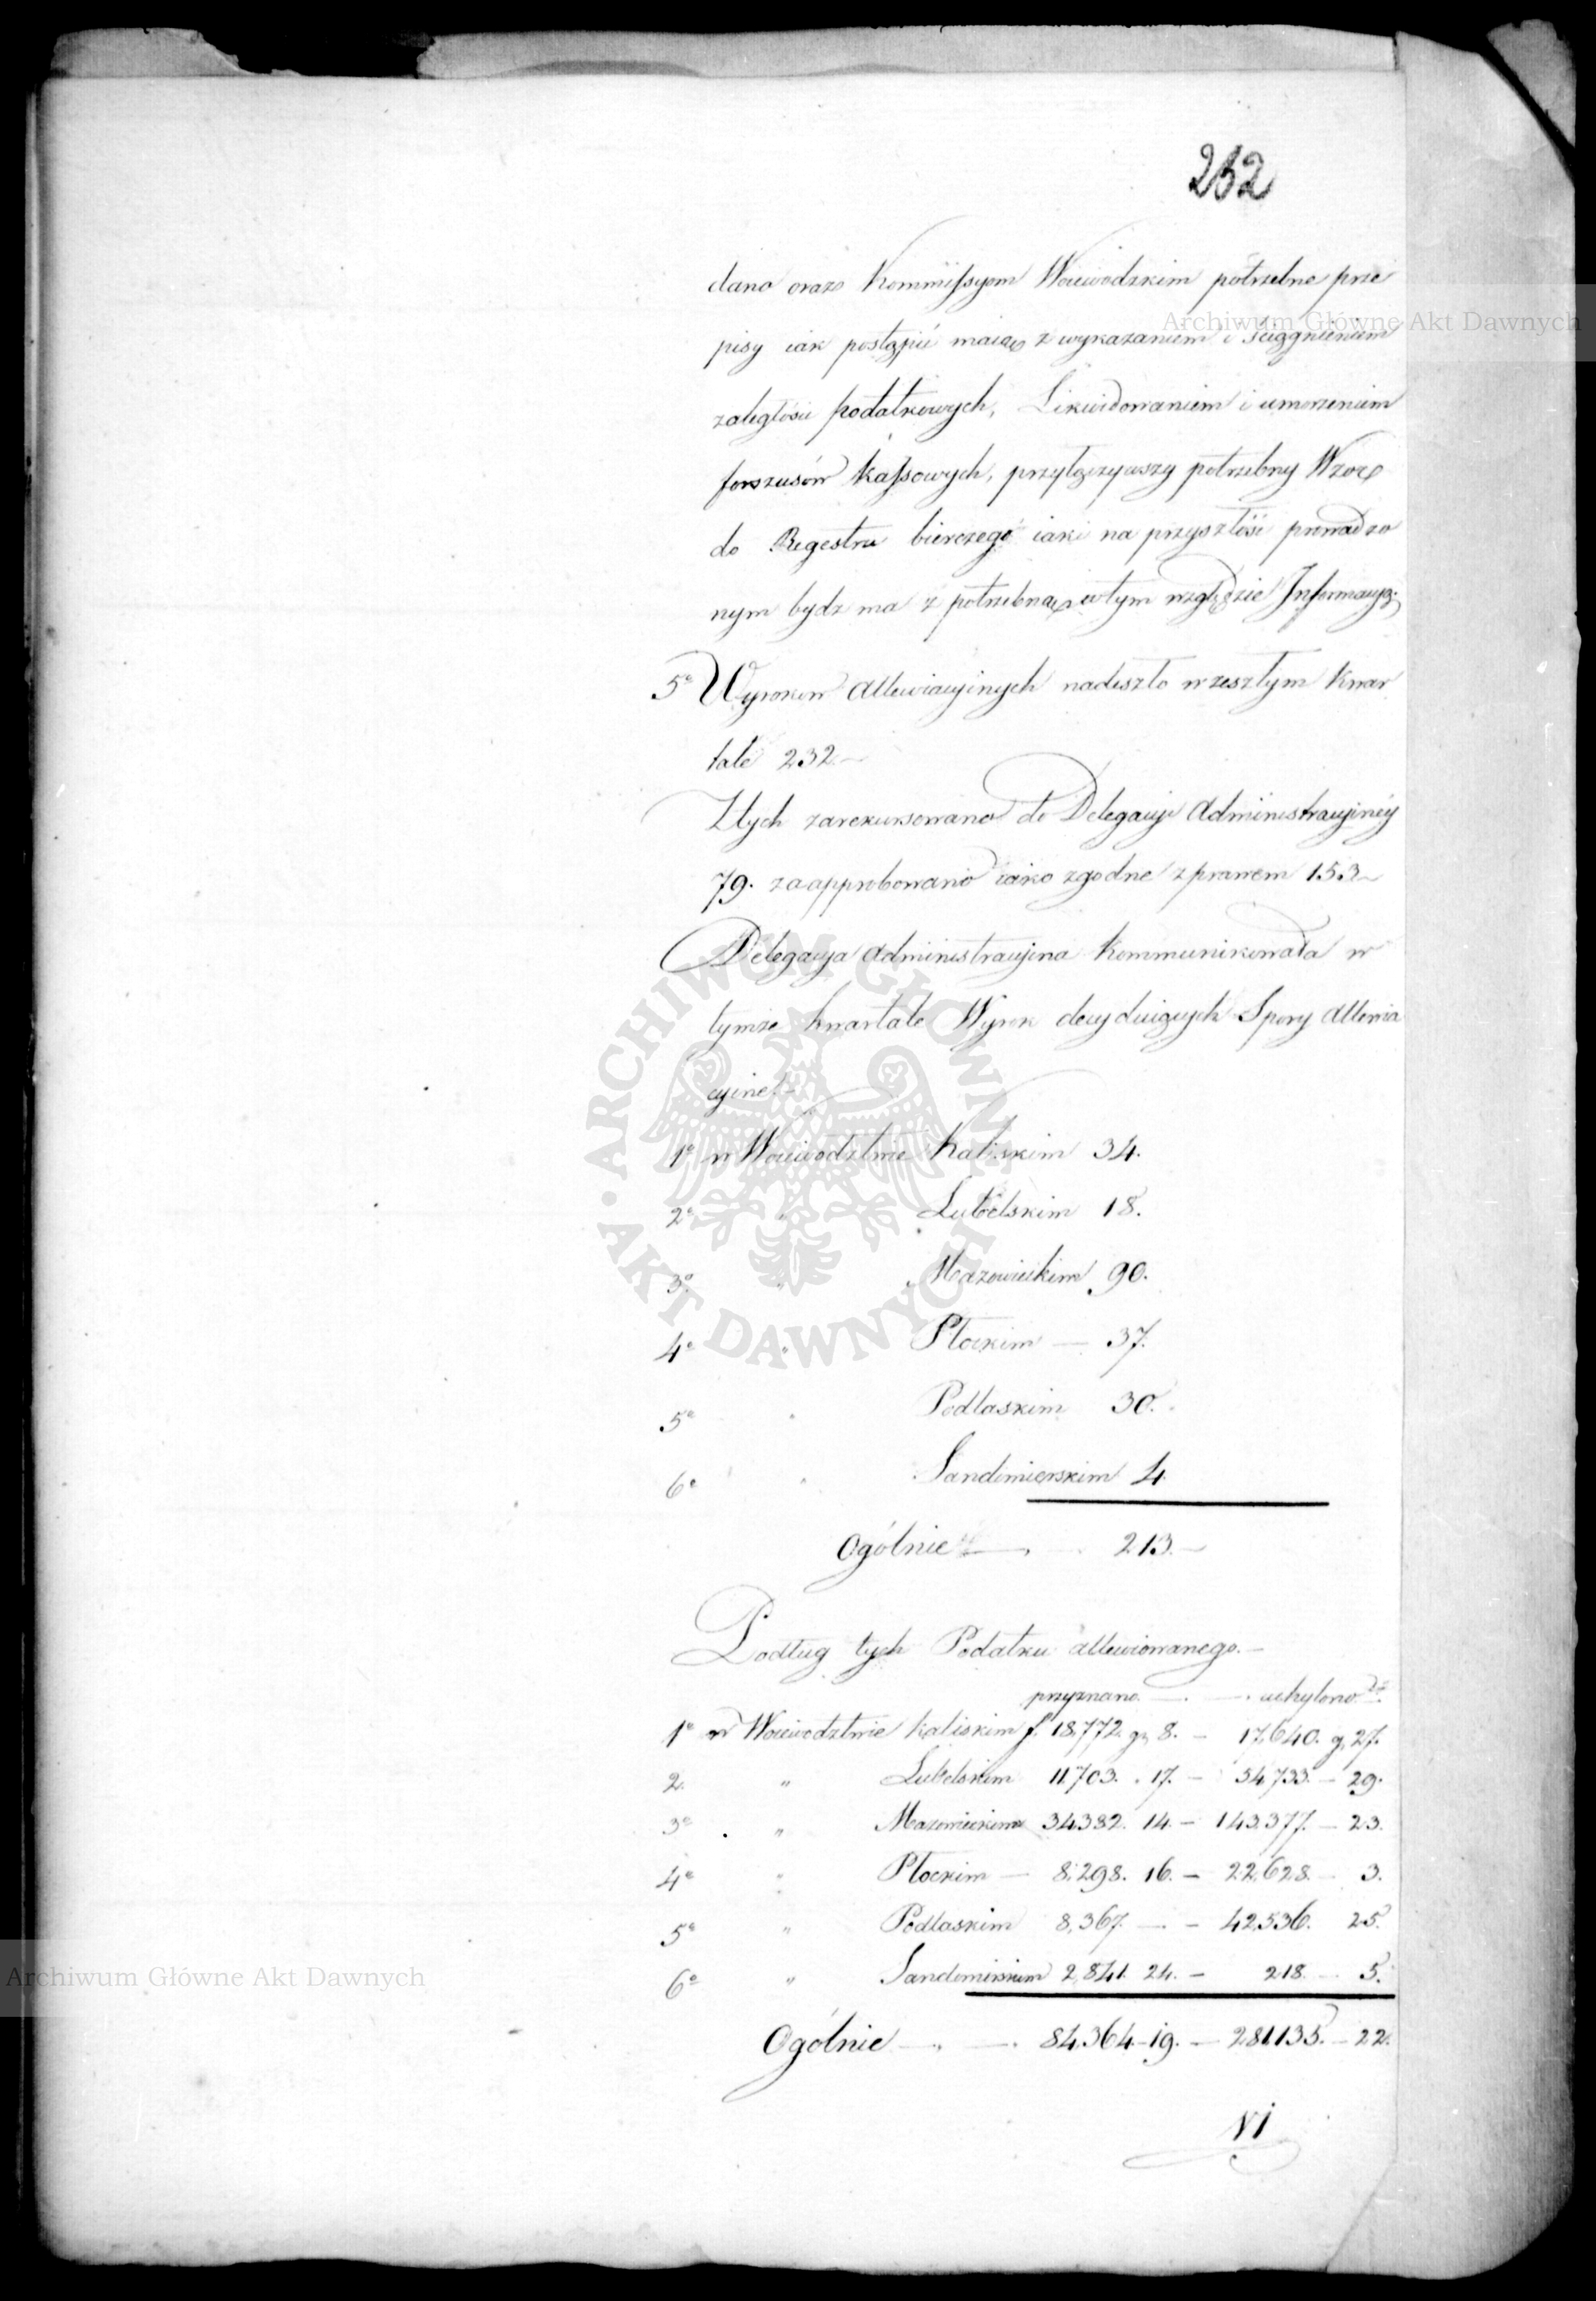 232
dano oraz Kommissyom Woiewodzkim potrzebne prze
pisy iak postąpić maią z wykazaniem i ściągnieniem
zaległości podatkowych, Likwidowaniem i umorzeniem
forszusów kassowych, przyłączywszy potrzebny Wzór
do Regestru bierczego iaki na przyszłość prowadzo
nym bydz ma z potrzebną w tym względzie Informacyą.
5° Wyroków Allewiacyinych nadeszło w zeszłym Kwar
tale 232 —
Z tych zarekursowano do Delegacyi Administracyiney
79. zaapprobowano iako zgodne z prawem 153 —
Delegacya Administracyina kommunikowała w
tymże kwartale Wyrok decyduiących Spory Allewia
cyine. —
1° w Woiewodztwie Kaliskim 34.
2° " Lubelskim 18.
3° " Mazowieckim 90.
4° " Płockim — 37.
5° " Podlaskim 30.
6° " Sandomierskim 4.
Ogólnie — 213. —
Podług tych Podatku allewiowanego. —
przyznano. — uchylono
1° w Woiewodztwie Kaliskim f. 18,772 g. 8. — 17,640. g. 27.
2. " Lubelskim 11,703. . 17. — 54,733. — 29.
3° " Mazowieckim 34,382. 14. — 143,377. — 23.
4° " Płockim — 8,298. 16. — 22,628. — 3.
5° " Podlaskim 8,367. — — 42,536. 25.
6° " Sandomirskim 2,841. 24. — 218. — 5.
Ogólnie — 84,364 — 19. — 281,135. — 22.
VI
Archiwum Główne Akt Dawnych
Archiwum Główne Akt Dawnych
ARCHIWUM GŁÓWNE AKT DAWNYCH